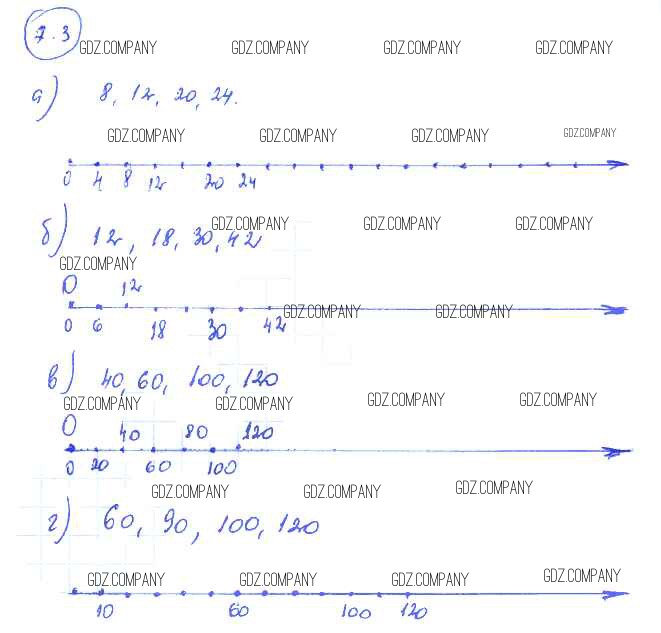 7.3
GDZ.COMPANY GDZ.COMPANY GDZ.COMPANY GDZ.COMPANY
а) 8, 12, 20, 24.
GDZ.COMPANY GDZ.COMPANY GDZ.COMPANY GDZ.COMPANY
0 4 8 12 20 24
GDZ.COMPANY GDZ.COMPANY GDZ.COMPANY
б) 12, 18, 30, 42
GDZ.COMPANY
0 12
GDZ.COMPANY GDZ.COMPANY
0 6 18 30 42
в) 40, 60, 100, 120
GDZ.COMPANY GDZ.COMPANY GDZ.COMPANY GDZ.COMPANY
0 40 80 120
0 20 60 100
GDZ.COMPANY GDZ.COMPANY GDZ.COMPANY
г) 60, 90, 100, 120
GDZ.COMPANY GDZ.COMPANY GDZ.COMPANY GDZ.COMPANY
10 60 100 120